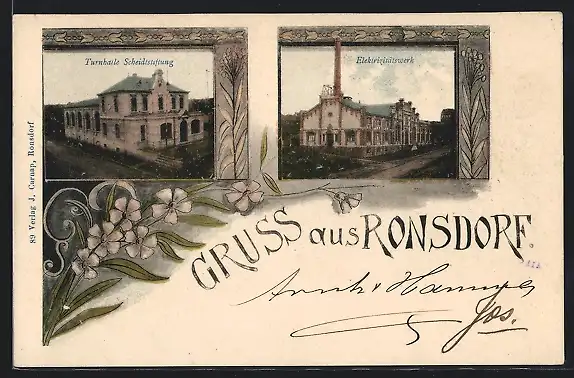 Turnhalle Scheidtstiftung
Elektrizitätswerk
89 Verlag J. Carnap, Ronsdorf
GRUSS aus RONSDORF.
Jos.